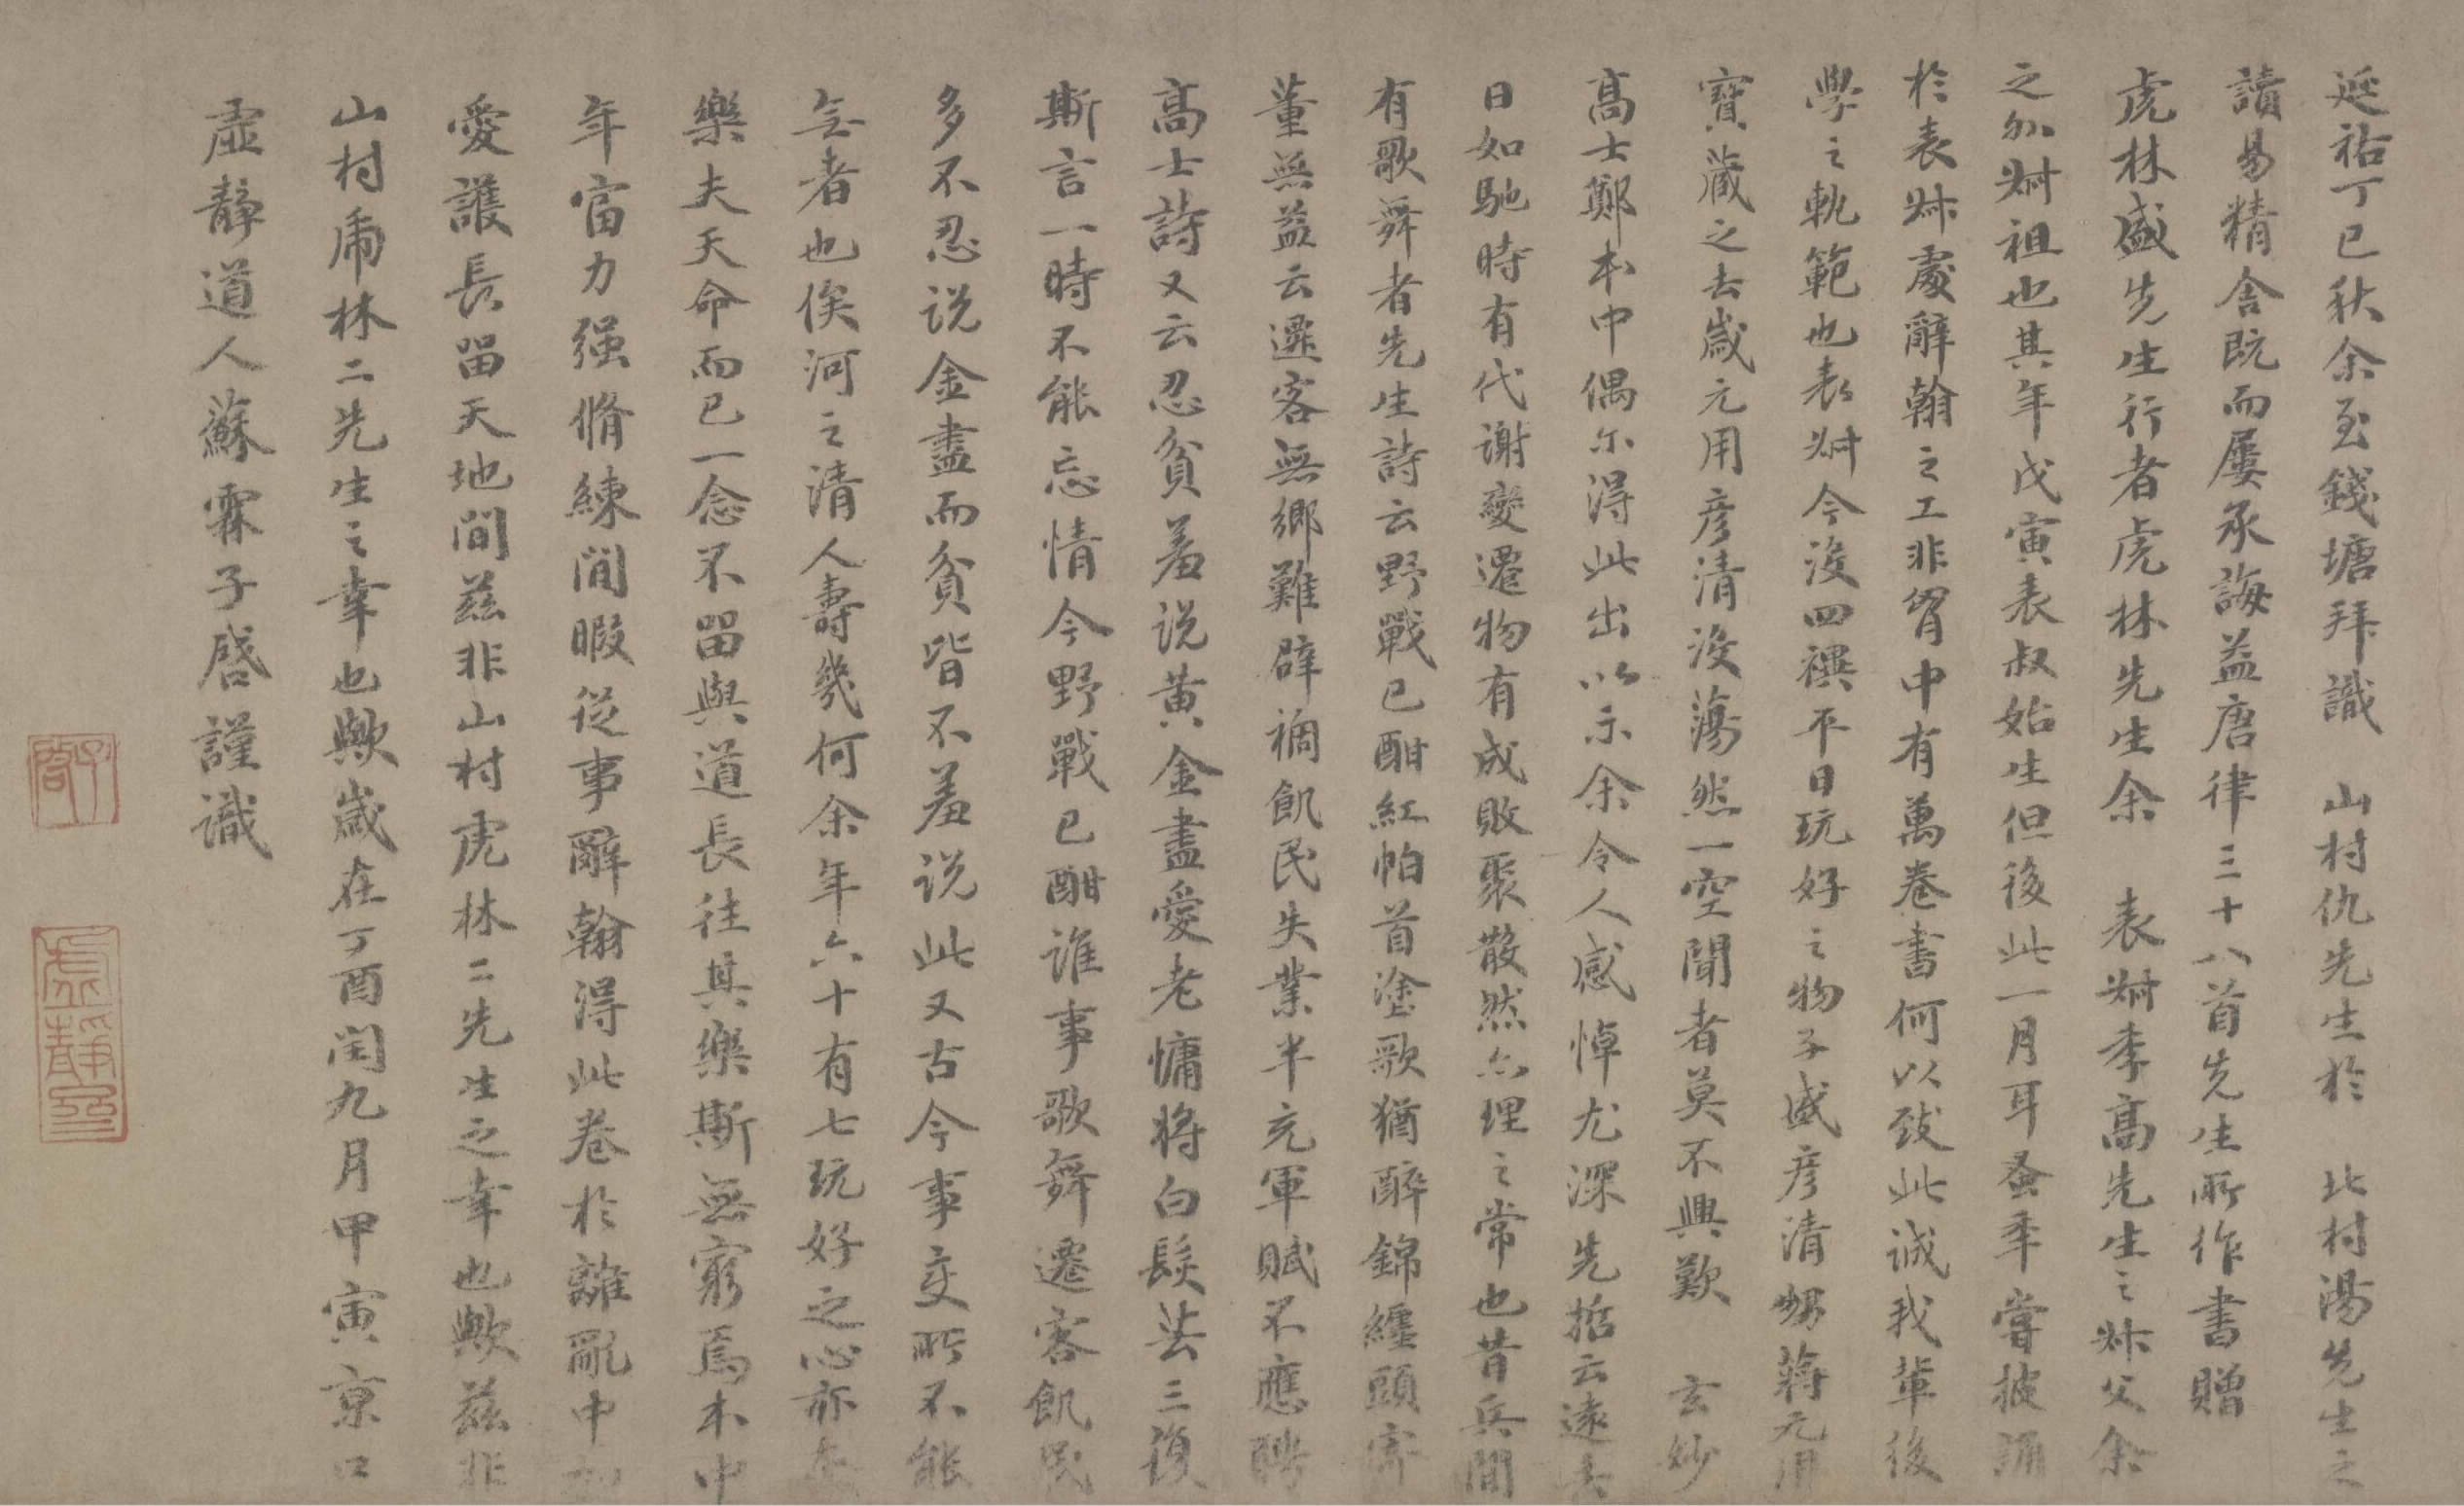 延祐丁巳秋余至錢塘拜識　山村仇先生於　北村湯先生之
讀易精舍既而屢承誨益唐律三十八首先生所作書贈
虎林盛先生行者虎林先生余　表叔季高先生之叔父余
之外叔祖也其年戊寅表叔始生但後此一月耳蚤年嘗披誦
於表叔處辭翰之工非胷中有萬卷書何以致此誠我輩後
學之軌範也表叔今沒四禩平日玩好之物子盛彥清甥蔣元用
寶藏之去歲元用彥清沒蕩然一空聞者莫不興歎　玄妙
高士鄭本中偶尔得此出以示余令人感悼尤深先哲云遠去
日如馳時有代謝變遷物有成敗聚散然亦理之常也昔兵間
有歌舞者先生詩云野戰已酣紅帕首塗歌猶醉錦纏頭寄
董無益云遷客無鄉難辟禍飢民失業半充軍賦不應聘
高士詩又云忍貧羞说黄金盡愛老慵将白髮芸三復
斯言一時不能忘情今野戰已酣誰事歌舞遷客飢民
多不忍说金盡而貧皆不羞说此又古今事变所不能
者也俟河之清人壽幾何余年六十有七玩好之心亦
樂夫天命而已一念不留與道長往其樂斯無窮焉本中
年富力强脩練閒暇從事辭翰得此卷於離亂中
愛護長留天地間兹非山村虎林二先生之幸也歟兹非
山村虎林二先生之幸也歟歲在丁酉閏九月甲寅京口
虛靜道人蘇霖子啓謹識
子啓
虛靜